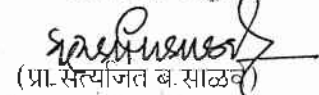 (प्रा. सत्यजित ब. साळवे)